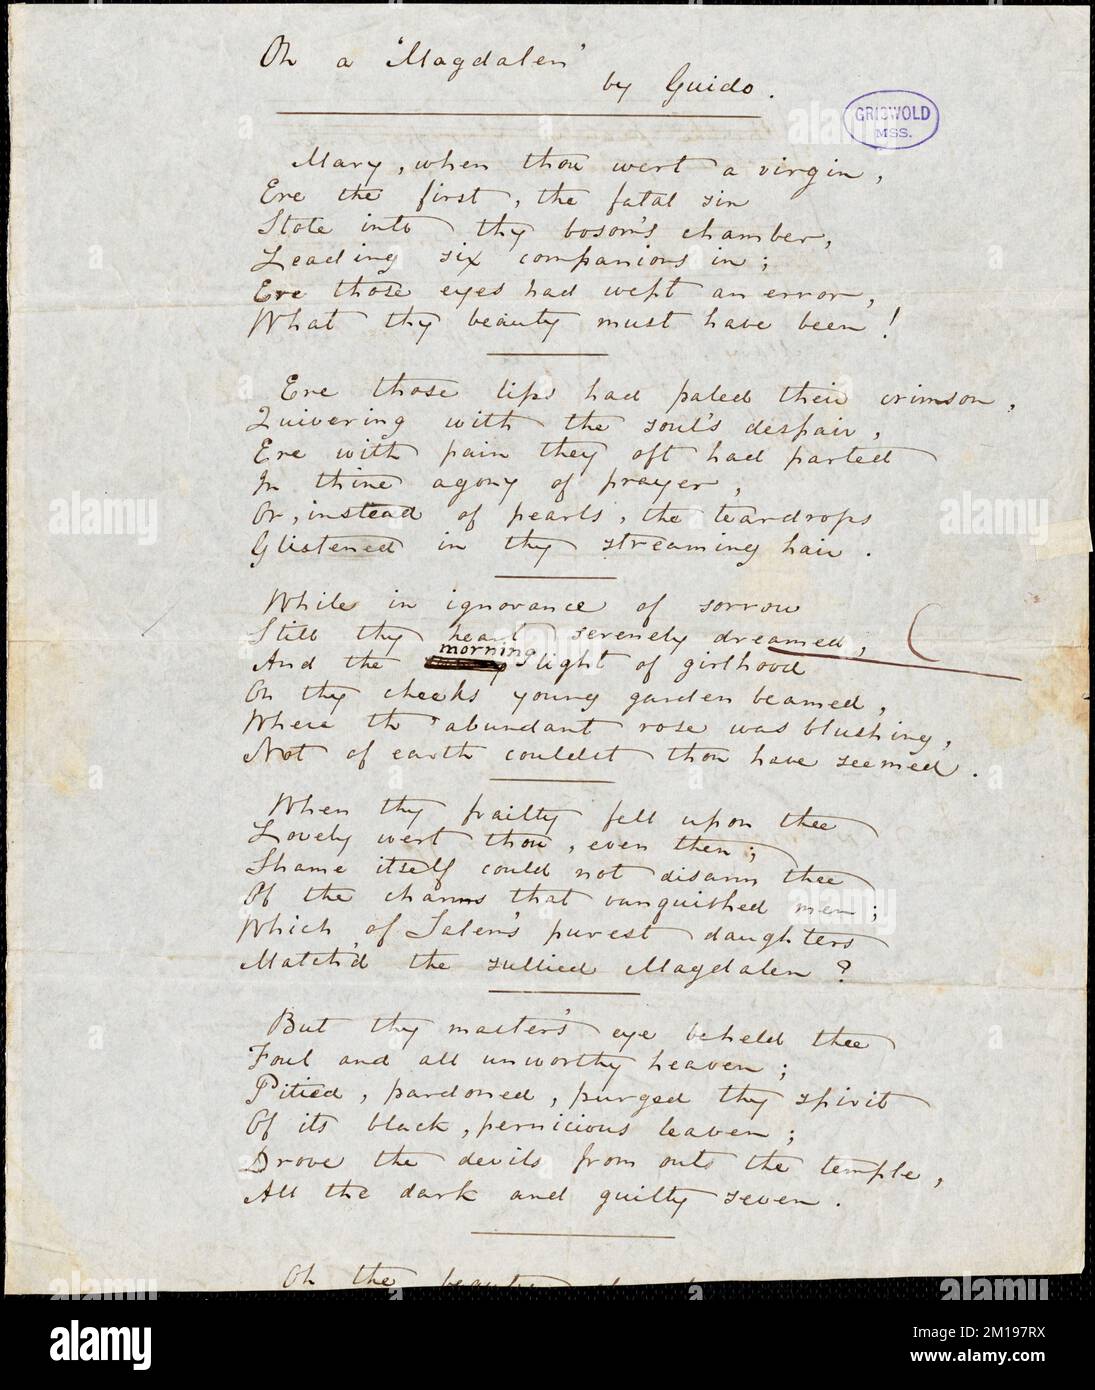 On a 'Magdalen'
by Guido.
GRISWOLD
MSS.
Mary, when thou wert a virgin,
Ere the first, the fatal sin
Stole into thy bosom's chamber,
Leading six companions in;
Ere those eyes had wept an error,
What thy beauty must have been!
Ere those lips had paled their crimson,
Quivering with the soul's despair,
Ere with pain they oft had parted
In thine agony of prayer,
Or, instead of pearls, the teardrops
Glistened in thy streaming hair.
While in ignorance of sorrow
Still thy heart serenely dreamed,
And the morning light of girlhood
On thy cheeks young garden beamed,
Where th' abundant rose was blushing,
Not of earth couldst thou have seemed.
When thy frailty fell upon thee
Lovely wert thou, even then;
Shame itself could not disarm thee
Of the charms that vanquished men;
Which of Salem's purest daughters
Match'd the sullied Magdalen?
But thy master's eye beheld thee
Foul and all unworthy heaven;
Pitied, pardoned, purged thy spirit
Of its black, pernicious leaven;
Drove the devils from out the temple,
All the dark and guilty seven.
Oh the beauty
alamy
Image ID: 2M197RX
www.alamy.com